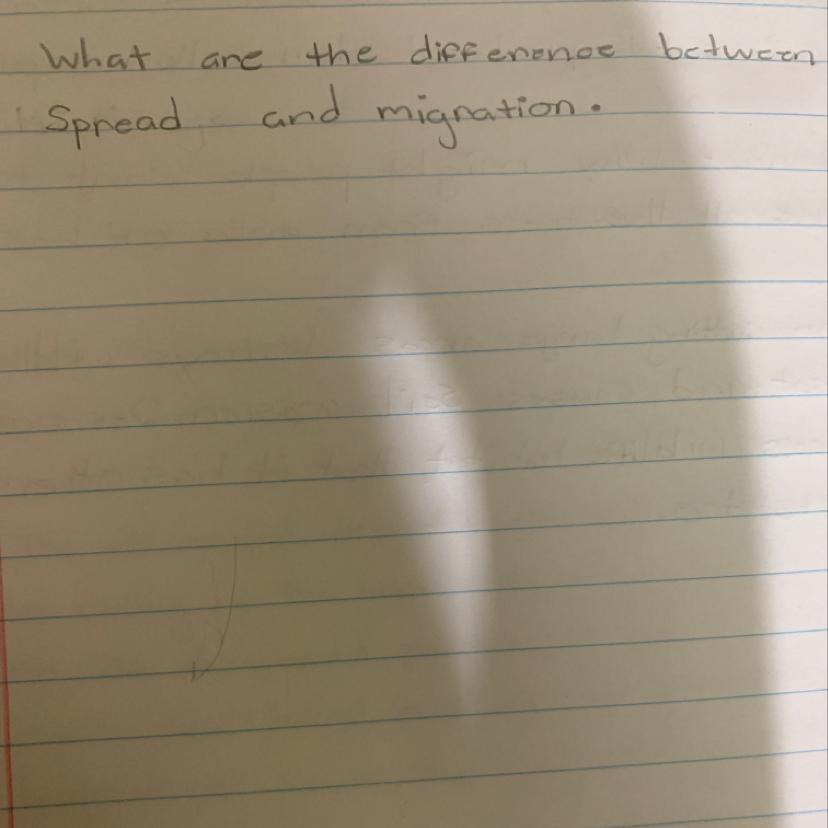 What are the difference between
Spread and migration.